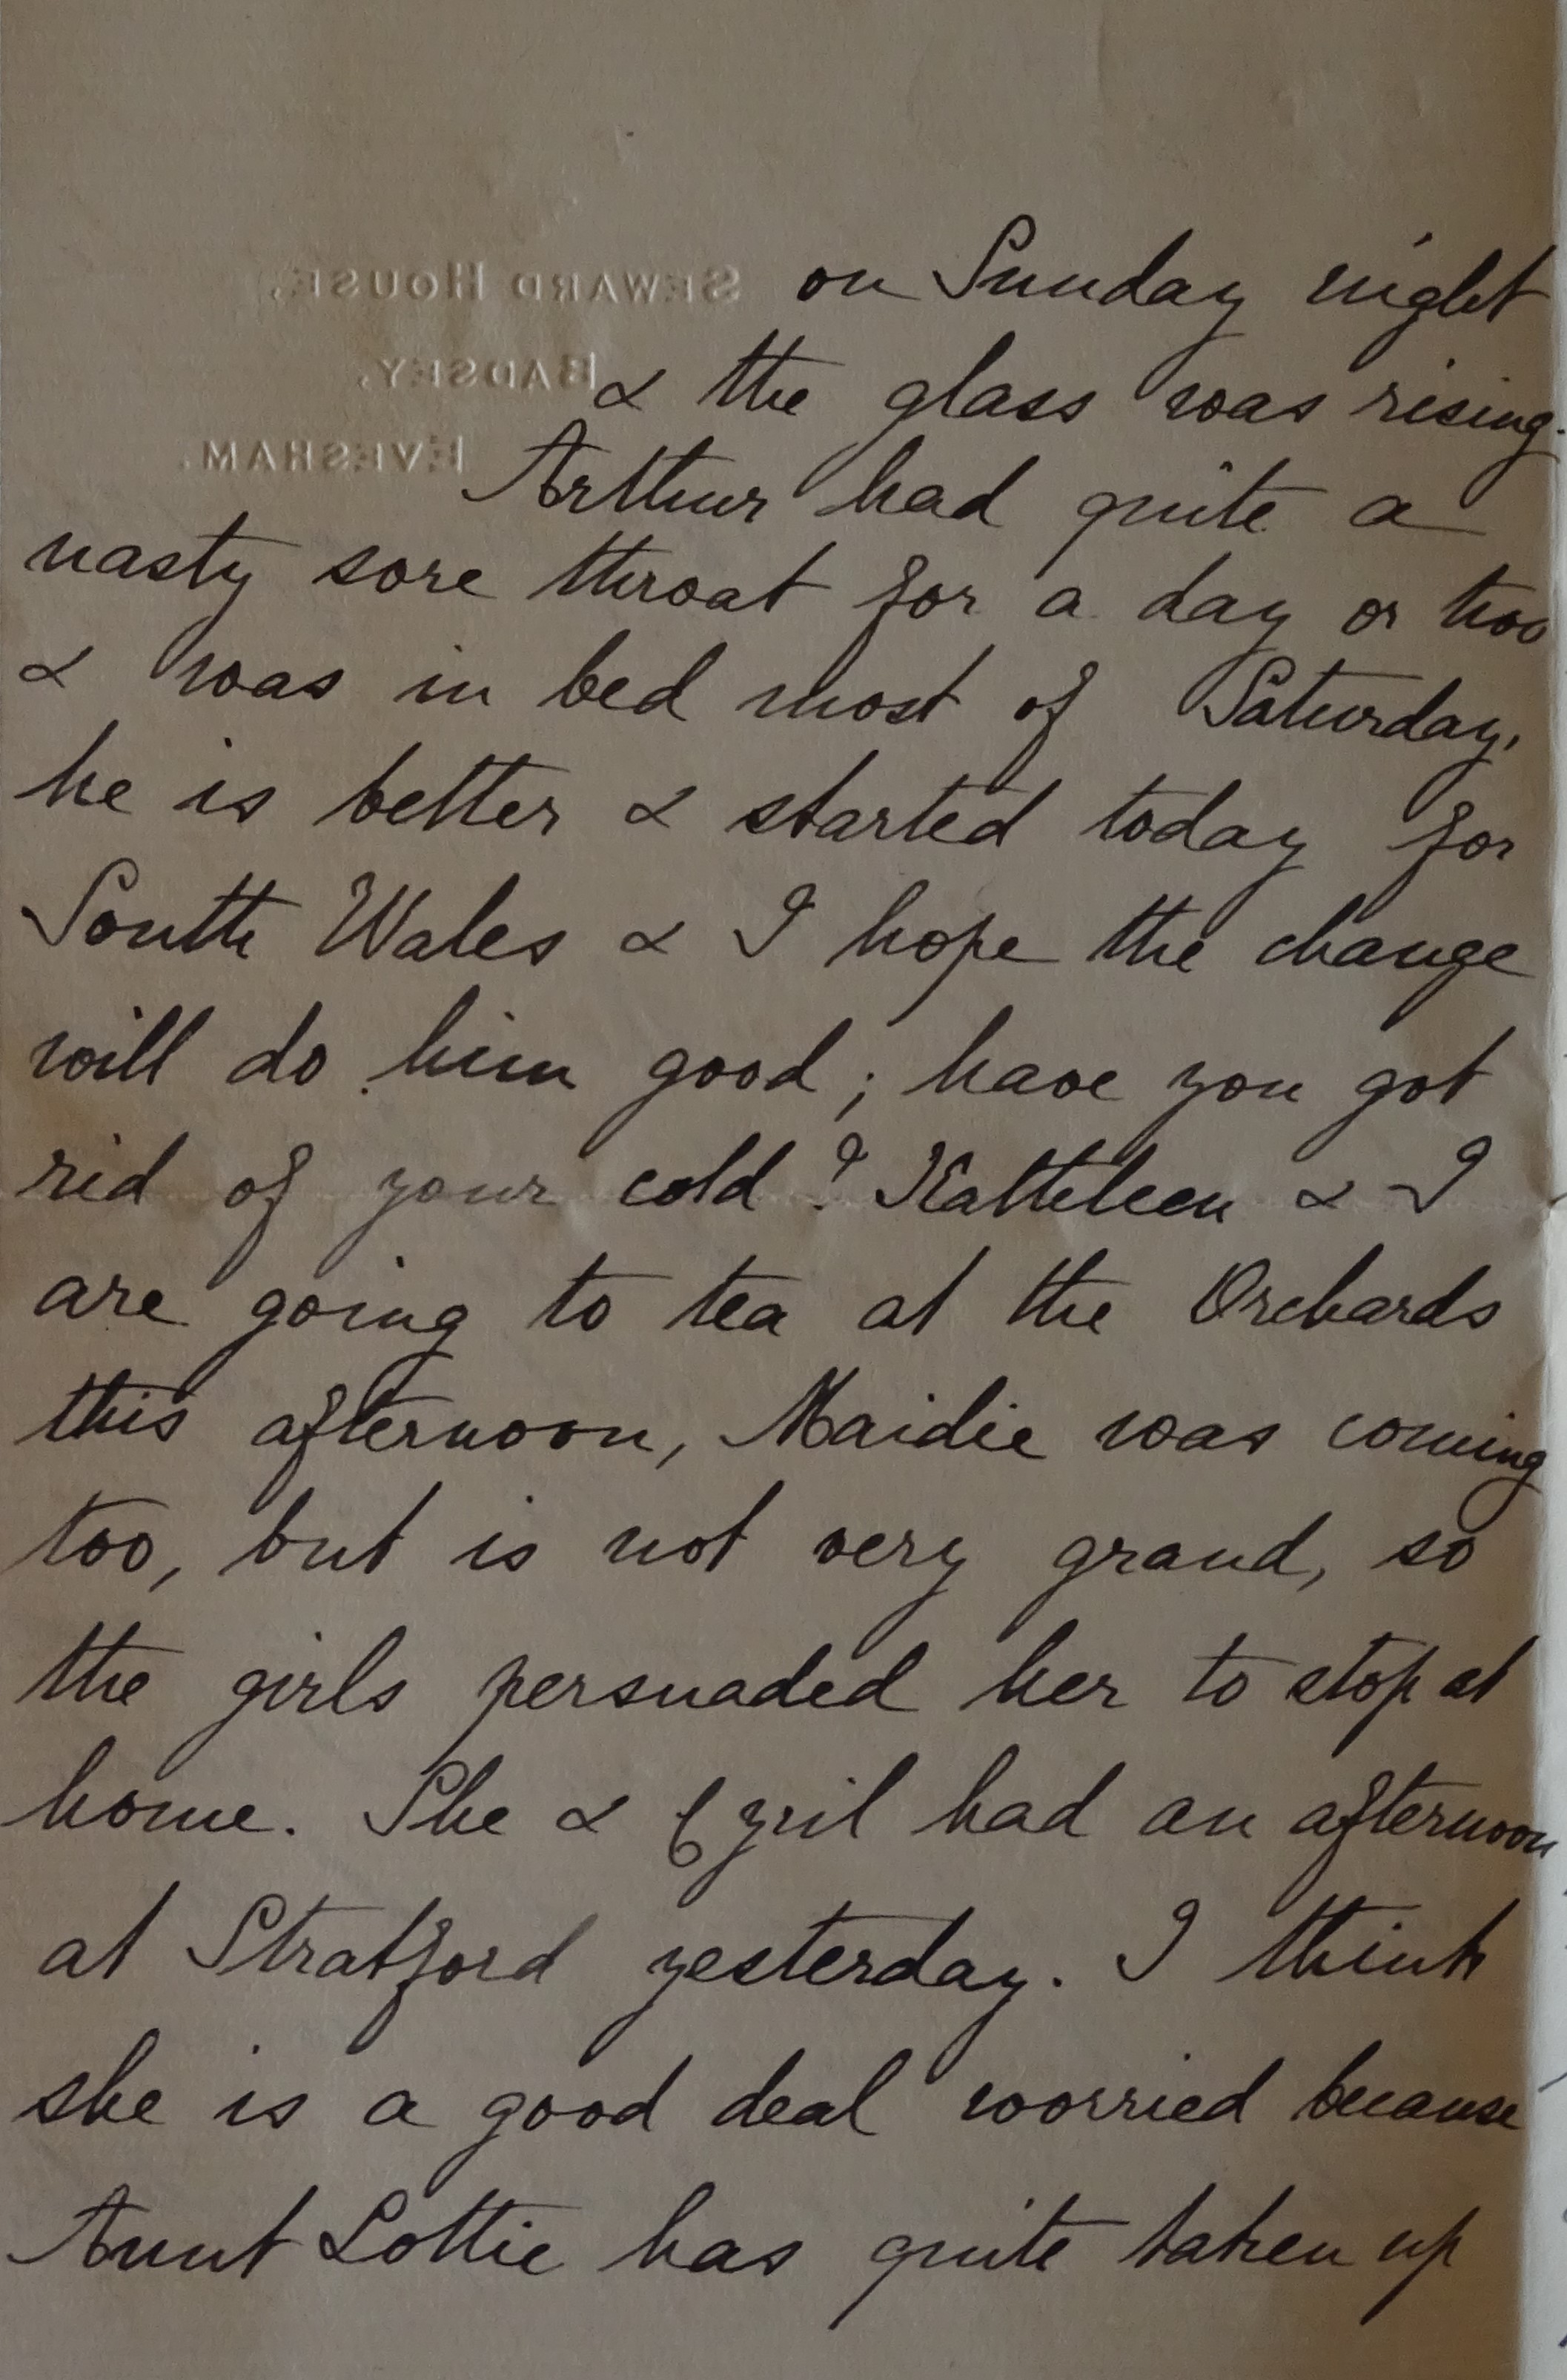 SEWARD HOUSE,
BADSEY,
EVESHAM.
on Sunday night
& the glass was rising.
Arthur had quite a
nasty sore throat for a day or two
& was in bed most of Saturday,
he is better & started today for
South Wales & I hope the change
will do him good; have you got
rid of your cold? Kathleen & I
are going to tea at the Orchards
this afternoon, Maidie was coming
too, but is not very grand, so
the girls persuaded her to stop at
home. She & Cyril had an afternoon
at Stratford yesterday. I think
she is a good deal worried because
Aunt Lottie has quite taken up